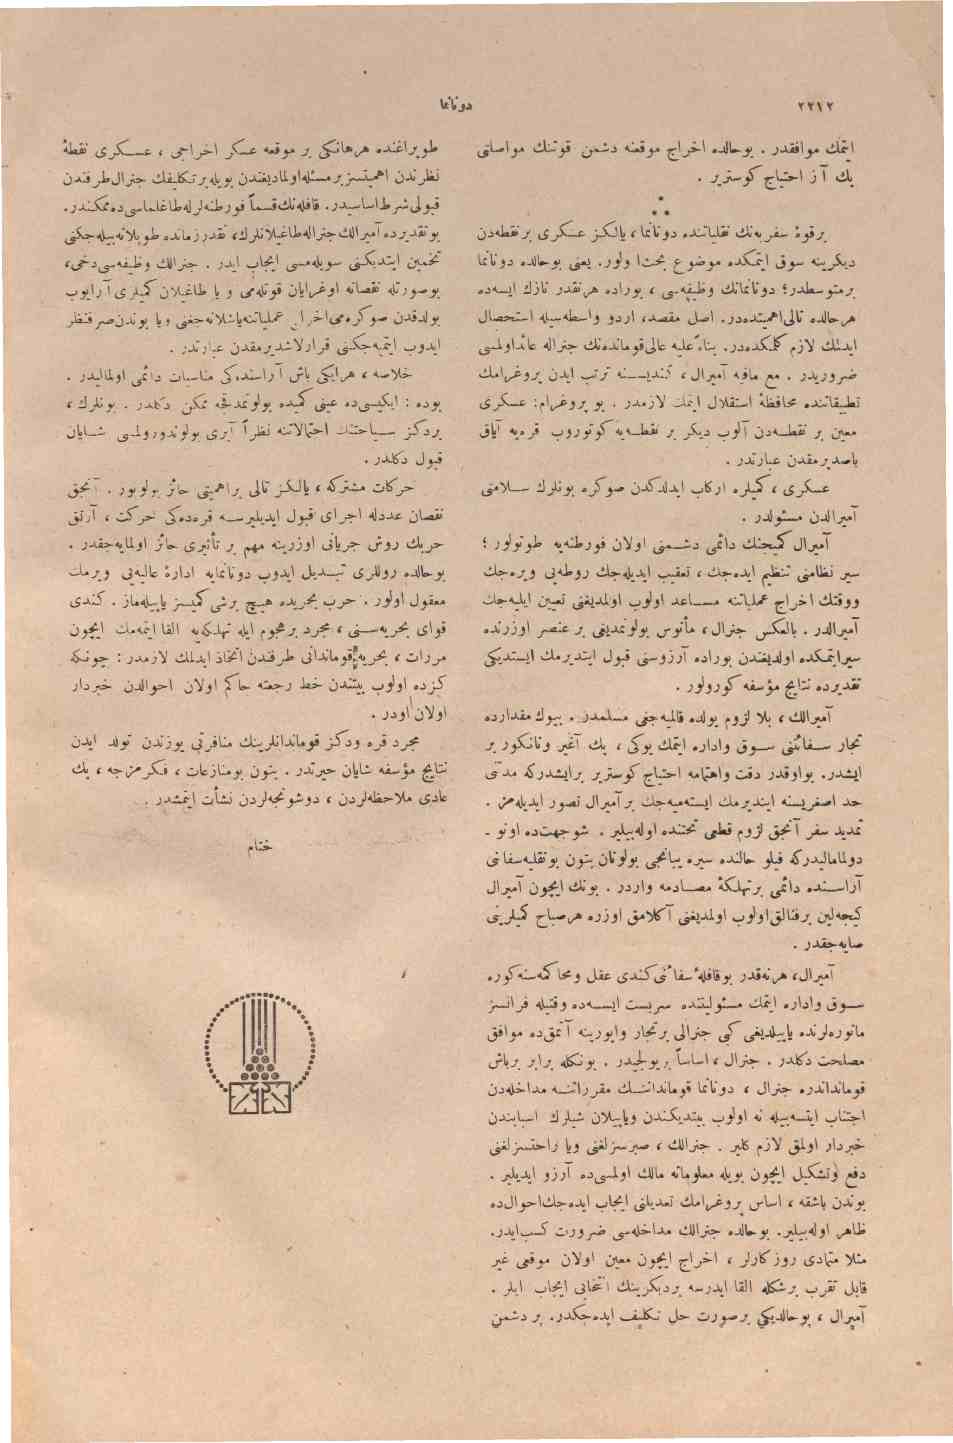 ٢٢١٢
دونانما
ايتمك موافقدر . بوحالده اخراج موقعنه دشمن قوتنك مواصلتى
پك آز احتياج كوسترير .
* * *
برقوۀ سفريه‌نك نقلياتنده دونانما ، يالكز عسكرى برنقطه‌دن
ديكرينه سوق ايتمكده موضوع بحث اولور. يعنى بوحالده دونانما
برمتوسطدر؛ دونانمانك وظيفه‌سى ، بوراده هرنقدر نازك ايسه‌ده
هرحالده تالى‌اهميتده‌در. اصل مقصد، اردو واسطه‌سيله استحصال
ايدلمك لازم كلمكده‌در. بناءً عليه عالى‌قوماندەنك جنراله عائداولمسى
ضروريدر . مع مافيه آميرال ، كنديسنه ترتب ايدن پروغرامك
تطبيقاتنده محافظۀ استقلال ايتمك لازمدر . بو پروغرام: عسكرى
معين بر نقطه‌دن آلوب ديكر بر نقطه‌يه كوتوروب قره‌يه آياق
باصديرمقدن عبارتدر .
عسكرى ، كميلره اركاب ايدلدكدن صوكره بونلرك سلامتى
آميرالدن مسئولدر .
آميرال كميجينك دائمى دشمنى اولان فورطنه‌يه طوتولور ؛
سير نظامنى تنظيم ايده‌جك ، تعقيب ايديله‌جك روطه‌يى ويره‌جك
ووقتك اخراج عملياتنه مساعد اولوب اولمديغنى تعيين ايليه‌جك
آميرالدر. بالعكس جنرال، مأنوس بولونمديغى برعنصر اوزرنده
سيرايتمكده اولديغندن بوراده آرزوسنى قبول ايتديرمك ايستديكى
تقديرده نتايج مؤسفه كورولور .
آميرالك ، بلا لزوم يولده قالميه‌جغى مسلمدر . بيوك مقدارده
تجار سفائننى سوق واداره ايتمك يوكى ، پك آغير وتانكور بر
ايشدر. بواوقدر دقت واهتمامه احتياج كوسترير برايشدركه مدتنى
حد اصغريسنه اينديرمك ايسته‌ميه‌جك بر آميرال تصور ايديله‌مز .
تمديد سفر آنجق لزوم قطعى تحتنده اوله‌بيلير . شوجهت‌ده اونو -
دولماماليدركه فيلو حالنده سيره يبانجى بولونان بتون بونقليه‌سفائنى
آراسنده دائمى برتهلكۀ مصادمه واردر . بونك ايچون آميرال
كيجه‌لين برفنالق‌اولوب اولمديغنى آكلامق اوزره هرصباح كميلرينى
صايه‌جقدر .
آميرال، هرنه‌قدر بوقافلۀ‌سفائنى‌كندى عقل ومحاكمه‌سنه‌كوره
سوق واداره ايتمك مسئوليتنده سربست ايسه‌ده وقتيله فرانسز
مانوره‌لرنده ياپيلديغى كبى جنرالى برتجار واپورينه آتمق‌ده موافق
مصلحت دكلدر . جنرال ، اساساً بريولجيدر . بونكله برابر برباش
قومانداندره جنرال ، دونانما قوماندانك مقرراتنه مداخله‌دن
اجتناب ايتسه‌بيله نه اولوب بيتديكندن وياپيلان شيلرك اسبابندن
خبردار اولمق لازم كلير . جنرالك ، صبرسزلغنى ويا راحتسزلغنى
دفع وتشكيل ايچون بويله معلوماته مالك اولمسى‌ده آرزو ايديلير .
بوندن باشقه ، اساس پروغرامك تعديلنى ايجاب ايده‌جك‌احوال‌ده
ظاهر اوله‌بيلير. بوحالده جنرالك مداخله‌سى ضرورت كسب‌ايدر.
مثلا متمادى روزكارلر ، اخراج ايچون معين اولان موقعى غير
قابل تقرب برشكله القا ايدرسه برديكرينك انتخابى ايجاب ايلر .
آميرال ، بوحالديكى برصورت حل تكليف ايده‌جكدر. بر دشمن
طوپراغنده هرهانكى بر موقعه عسكر اخراجى ، عسكرى نقطۀ
نظرندن اهميتسزبرمسئله‌اولماديغندن بويله‌برتكليفك جنرال‌طرفندن
قبولى‌شرط‌اساسيدر. قافله‌نك‌قسماً فورطنه‌لرله‌طاغلماسى‌ده‌ممكندر.
بوتقديرده آميرالك جنراله‌طاغيلانلرك، نقدرزمانده طوپلانه‌بيله‌جكنى
تخمين ايتديكنى سويله‌مسى ايجاب ايدر . جنرالك وظيفه‌سى‌دخى،
بوصورتله نقصانه اوغرايان قوتله‌مى ويا طاغيلان كميلرى آرايوب
بولدقدن صوكره‌مى‌اخراج عملياتنه‌باشلانه‌جغنى ويا بوندن‌صرفنظر
ايدوب ايتميه‌جكنى قرارلاشديرمقدن عبارتدر .
خلاصه ، هرايكى باش آراسنده‌كى مناسبات دائمى اولماليدر .
بوده : ايكيسى‌ده عينى كميده بولونمدقجه ممكن دكلدر . بونلرك ،
بردكز سياحتنك احتمالاتنه نظراً آيرى بولوندورولمسى شايان
قبول دكلدر .
حركات مشتركه ، يالكز تالى براهميتى حائز بولويور . آنجق
نقصان عددله اجراى قبول ايديليرسه قره‌ده‌كى حركت ، آرتق
حربك روش جريانى اوزرينه مهم بر تأثيرى حائز اولمايه‌جقدر .
بوحالده روللرى تبديل ايدوب دونانمايه ادارۀ عاليه‌يى ويرمك
معقول اولور . حرب بحريده هيچ برشى كميسز ياپيله‌ماز . كندى
قواى بحريه‌سنى ، مجرد برهجوم ايله تهلكه‌يه القا ايتمه‌مك ايچون
مقررات ، بحريه‌قوماندانى طرفندن اتخاذ ايدلمك لازمدر : چونكه
كزده اولوب بيتندن خط رجعته حاكم اولان احوالدن خبردار
اولان اودر .
مجرد قره ودكز قوماندانلرينك منافرتى يوزندن تولد ايدن
نتايج مؤسفه شايان حيرتدر . بتون بومنازعات ، فكرمزجه ، پك
عادى ملاحظه‌لردن ، دوشونجه‌لردن نشأت ايتمشدر .
ختام